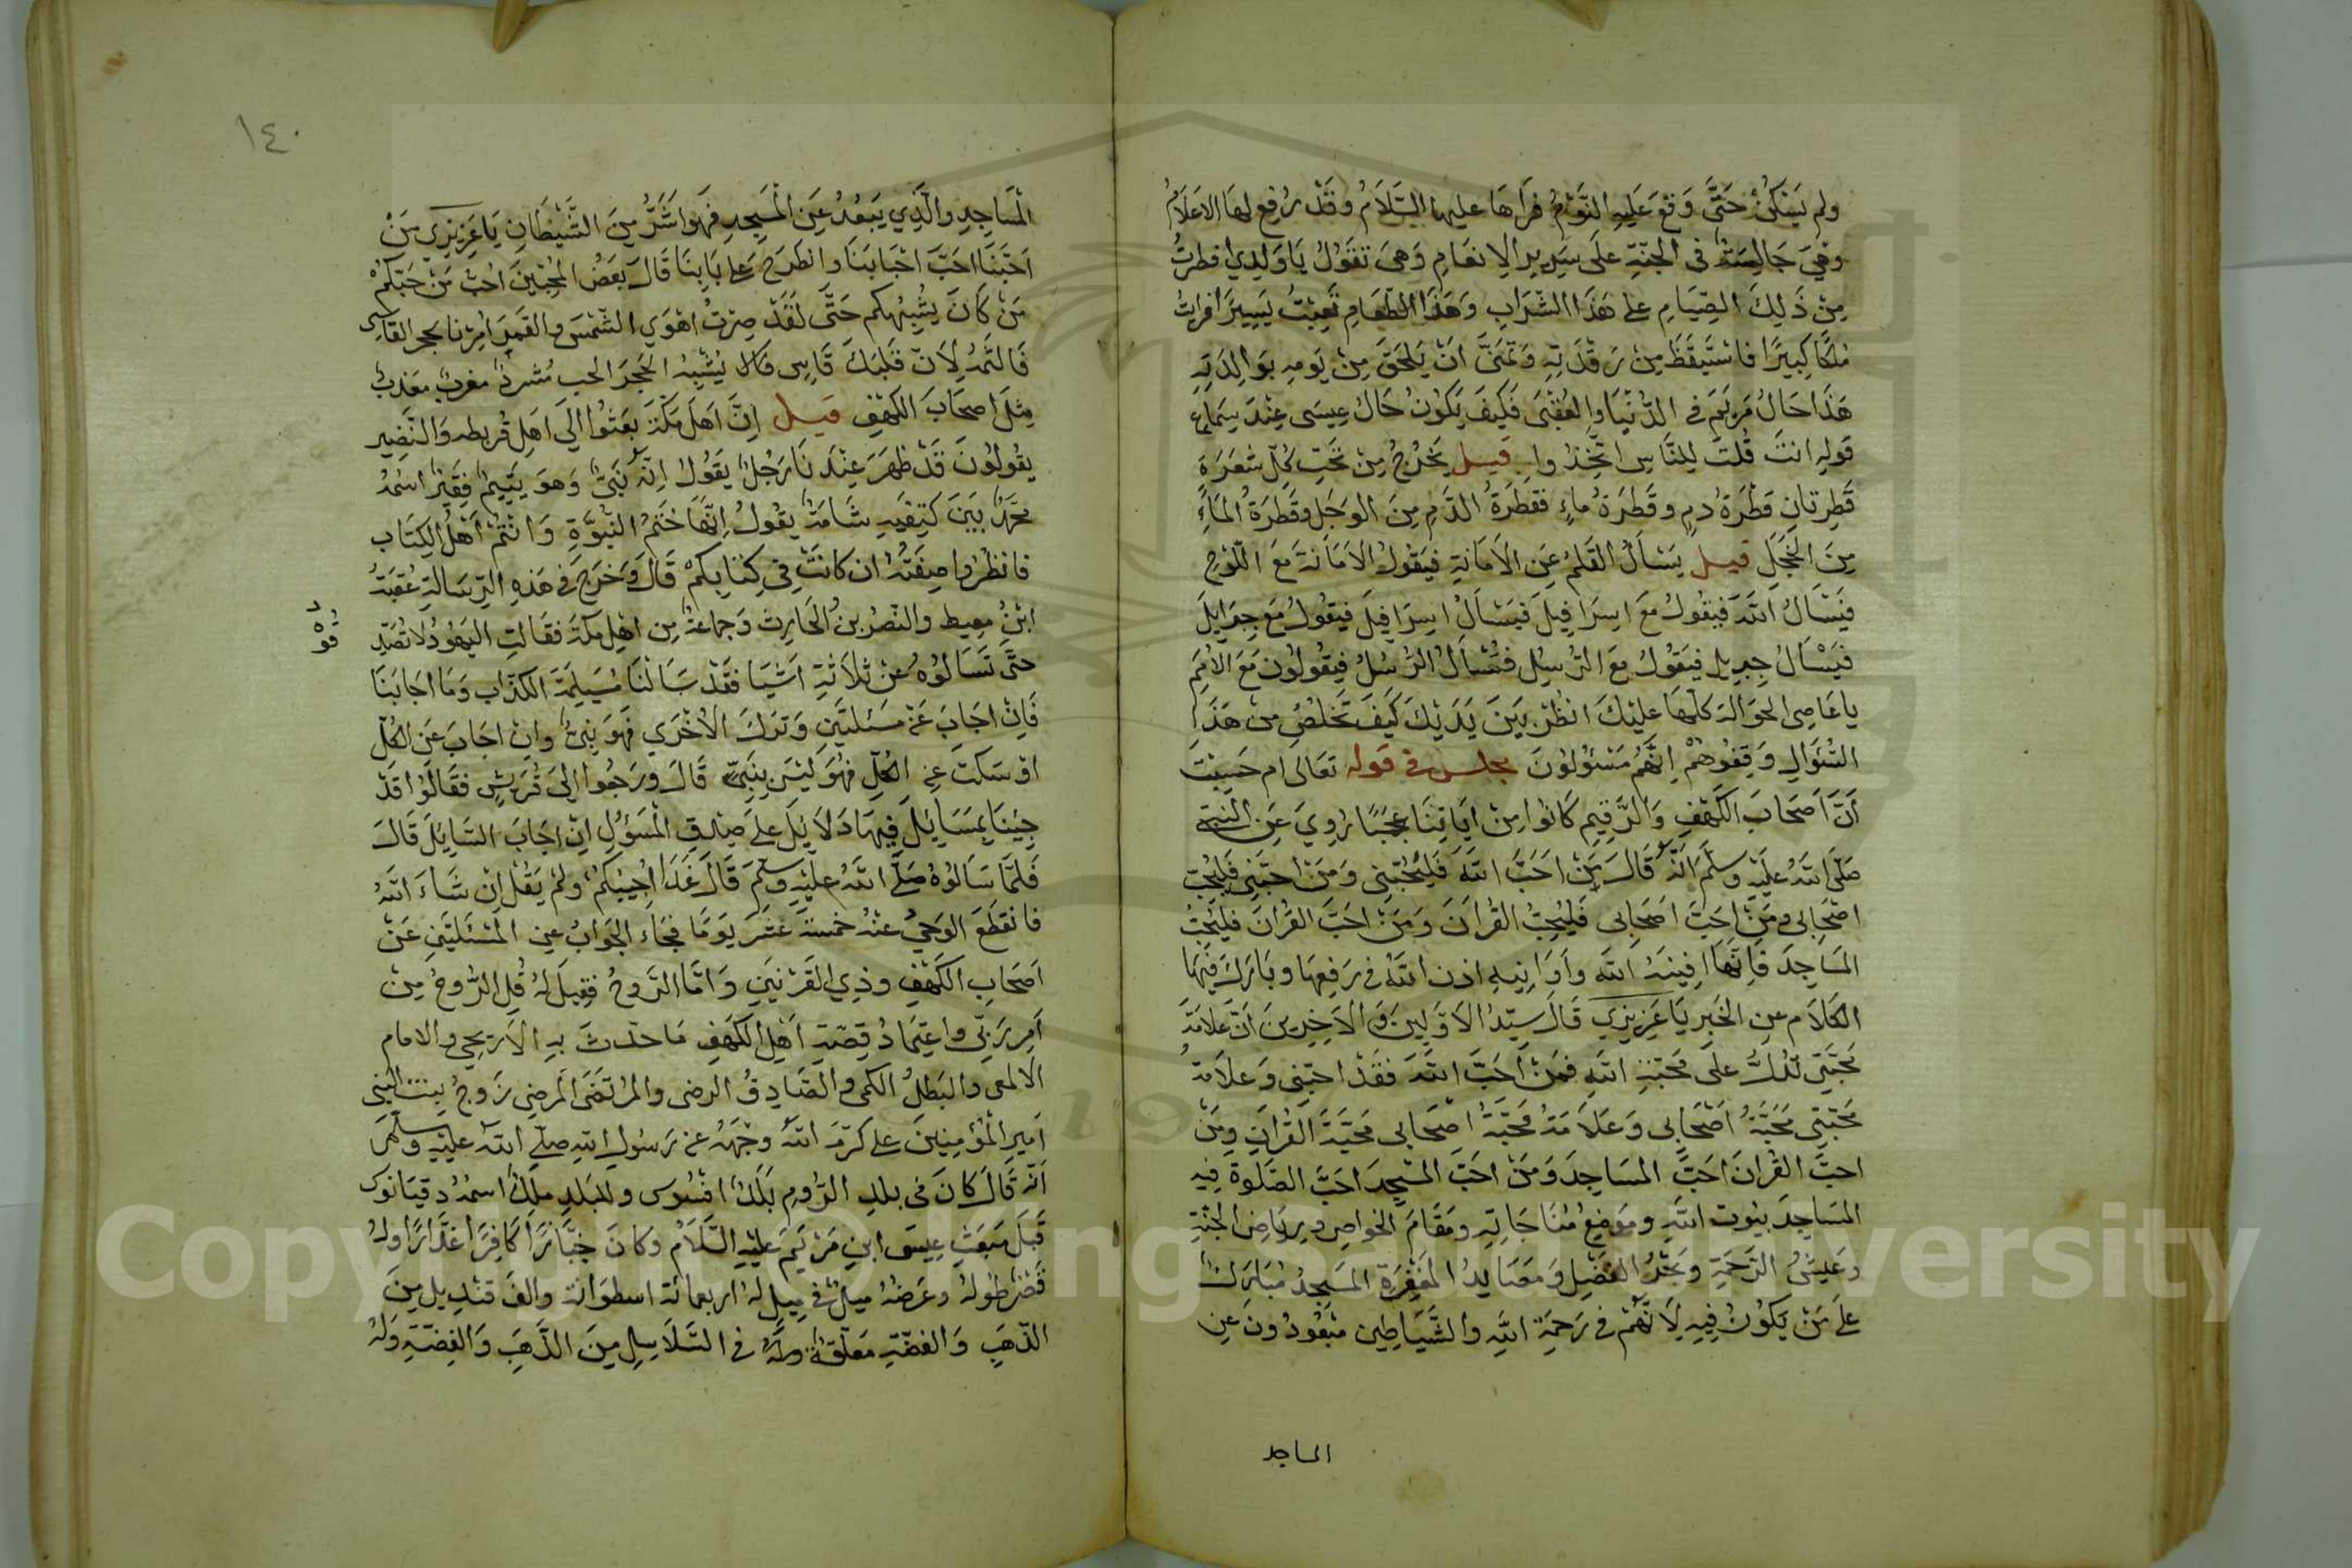 ولم يَسْكُنْ حَتَّى وَقعَ عَليهِ النَّوْمُ فرَاهَا عليها السَّلَامُ وقَدْ رُفِعَ لهَا الاعَلَامُ
وهِيَ جَالِسَةٌ في الجنَّةِ علَى سَرِيرِ الِانعَامِ وَهيَ تقَوُلُ يَا وَلَدِي افطرتُ
مِنْ ذَلِكَ الصِّيَامِ على هَذَا الشَّرَابِ وَهَذَا الطَّعَامِ تَعِبْتُ يَسِيرًا فرايتُ
مُلكًا كبيرًا فاسْتَيقَظَ مِنْ رَقْدَتِهِ وَتمَنَّى انْ يَلحَقَ مِنْ يَومِهِ بوَالِدَتِهِ
هَذَا حَالُ مَريَمَ في الدُّنْيَا وَالعُقْبَى فَكَيفَ يَكوُنُ حَالُ عِيسَى عِنْدَ سِمَاعِ
قَولِهِ انتَ قُلتَ لِلنَّاسِ اتَّخِذُوا قيل يَخرُجُ مِنْ تحَتِ كُلِّ شعَرَةٍ
قَطرتانِ قَطْرَةُ دمٍ وقَطرَةُ ماءٍ فقطْرَةُ الدَّمِ مِنَ الوجَلِ وقَطرَةُ الماَءِ
مِنَ الخَجَلِ قيل يَسْأَلُ القَلمَ عَنِ الامَانةِ فيَقولُ الامَانةَ مَعَ اللَّوْحِ
فيَسْأَلُ اللَّهَ فيقُولُ مَعَ اسرَافِيلَ فَيَسْأَلُ اسِرَافِيلَ فيَقولُ مَعَ جبرَايلَ
فيَسْأَلُ جبريل فيَقوُلُ معَ الرُّسُلِ فتُسْأَلُ الرُّسُلُ فيَقولُون مَعَ الامَمِ
يا عَاصِى الحوَالة كلّهَا عليْكَ انظُرْ بَينَ يَدَيْكَ كَيفَ تَخلُصُ مِنْ هَذَا
السُّؤَالِ وَقِفُوهُمْ انَّهُم مَسْئُولُونَ مجلس في قوله تعَالى ام حَسِبْتَ
أَنَّ اَصحَابَ الكَهْفِ وَالرَّقيمِ كَانُوا مِنْ ايَاتِنَا عجَبًا رُوِيَ عَنِ النبي
صَلَّى اللهُ عليَهِ وسَلَّمَ انَّهُ قَالَ مَنْ احَبَّ اللهَ فَليُحبَّنِى وَمَنْ احَبَّنِى فَليُحِبَّ
اصْحَابى ومَنْ احَبَّ اصْحَابى فَليُحِبُّ القُرانَ وَمَنْ احَبَّ القُرانَ فليُحِبُّ
المَسَاجدَ فَانَّهَا افينيَةُ اللهِ واَوَانِيهِ اذن اللهُ في رَفعِهَا وبَارَكَ فيهَا
الكَلَام عنِ الخَبرِ يَا عَزيزِي قَالَ سَيّدُ الاوَّلينَ وَالاخِرينَ انَّ عَلامَةَ
محَبَّتِى تَدُلُّ على محَبَّةِ اللهِ فَمنْ احَبَّ اللهَ فقَدْ احبّنِى وَعَلامَةُ
مَحَبَّتِى مَحَبَّةُ اَصْحَابِى وَعَلَامَةُ محَبَّةُ اصْحَابى مَحبَّةَ القُرانِ ومَنْ
احبَّ القُرانَ احَبَّ المسَاجِدَ وَمَنْ احَبَّ المسْجِدَ احَبَّ الصَلَوةَ فِيهِ
المسَاجِدَ بيُوت اللهِ ومَوضِعُ مُنَاجَاتِهِ ومَقَامَ الخواصِ ورِيَاضِ الجنَّةِ
وعَيشُ الرَّحْمَةِ وبَحْرُ الفَضْلِ ومَصَايدُ المَغْفِرَةِ المسَجِدُ مُبَارَكٌ
على مَنْ يَكوُنُ فِيهِ لِاَنَّهُمْ في رَحمَةِ اللهِ والشَّيَاطِين مبَعُودُونَ عَنِ
الماجد
١٤٠
المَسَاجِدِ والَّذِي يَبعُدُ عَنِ المَسجِدِ فهَوا شَرُّ مِنَ الشَّيْطَانِ يَا عَزيزي مَنْ
احَبَّنَا احَبَّ احْبَابَنَا وانطَرَحَ عَلى بَابِنَا قَالَ بَعَضُ المُحِبّينَ احُبّ مَنْ حَبّكُمْ
مَنْ كَانَ يشُبِهُكم حَتَّى لَقَدْ صِرْتُ اهَوَى الشَّمْسَ والقَمَرَ امِرُّنا بحجر القَاسِى
فَالتمهُ لِانّ قَلبَكَ قَاسِى فَكَلا يُشْبِهُ الحَجَرَ الحب مُشردٌ مغربٌ معَذبٌ
مِثلَ اصحَابَ الكهْفِ قيل اِنَّ اهَلَ مَكةَ بعَثُوا اِلى اَهلِ قُريظه وَالنَّضِيرِ
يقُولوُنَ قَدْ ظهَرَ عِنْدَنَا رَجُلٌ يَقُولُ اِنَّهُ نَبىٌّ وَهوَ يَتيمٌ فِقَيرٌ اسمُهُ
محَمّدٌ بَينَ كتِفَيهِ شَامَةٌ يقُولُ اِنَّهَا خَتمُ النّبُوَّةِ وَانتُمْ اَهْلُ الكِتَابِ
فانظُرُوا صِفَتَهُ ان كانَتْ في كِتابكُمْ قَالَ وَخَرَجَ في هَذهِ الرِّسَالةِ عُقبَةُ
ابْنُ معِيط والنَّضرُ بنُ الحَارِثِ وَجماعَةٌ مِن اهْلِ مكةَ فقَالتِ اليَهوُدُ لا تُصَدِّ
قوُهُ
حتَّى تَسَالُوُهُ عَنْ ثلَاثةِ اَشْيَا فقَدْ سَالنَا مُسَيلِمَةَ الكذّاب وَمَا اجَابَنَا
فَانْ اجَابَ عَنْ مَسئلَتَينِ وَتركَ الاخْرَى فَهوَ نبيٌّ وانْ اجَابَ عَنِ الكلّ
اوْ سَكَتَ عَنِ الكُلّ فهُوَ ليسَ بِنَبىّ قَالَ ورَجُوا اِلى قُرَيشٍ فقَالوُا قَدْ
جِيْنَا بِمَسَايلَ فيهَا دَلَايلَ على صِدقِ المسؤُلِ انْ اجَابَ السَّايِلَ قَالَ
فَلمَّا سَالوُهُ صَلَّى اللهُ عليْهِ وسَلّمَ قَالَ غَدَا اُجِيبُكُم ولَمْ يَقُلْ اِنْ شَاءَ اللهُ
فانقَطَعَ الوَحيُ عنْهُ خمسَةَ عَشَرَ يَوْمًا فجَاءَ الجوَابُ عنِ المسْئَلتَينِ عَنْ
اَصحَابِ الكَهْفِ وذِي القَرْنَينِ وَامّا الرّوحُ فقِيلَ لهُ قُلِ الرُّوحُ مِنْ
اَمرِ رَبّى واعتِمَادُ قِصَّةِ اَهْلِ الكَهفِ مَا حدّثَ بهِ الاريحىّ والامام
الالمعى والبَطلُ الكمى والصَّادِقُ الرضى والمُرتَضَى المرضى زَوجُ بنت النبى
اَمير المؤمِنِينَ على كرَّمَ اللهُ وجْهَهُ عَن رَسُولِ اللهِ صَلَّى اللهُ عليْهِ وسَلَّمَ
اَنّهُ قَالَ كانَ في بلدِ الرُّومِ بَلَدٌ افسُوس وللبَلدِ ملِكٌ اسمُهُ دقيَانوس
قَبلَ مَبَعثِ عيِسَى ابنِ مَرْيَمَ عليْهِ السَّلَامُ وكانَ جَبَّارًا كَافِرًا غَدَّارًا ولهُ
قَصرٌ طوُلهُ وعَرضُهُ مِيلٌ في ميلٍ لهُ اربعمائة اسطوَانة والفَ قنديل مِنَ
الذّهَبِ وَالفضّةِ معَلّقةٌ في السَّلَاسِلِ مِنَ الذَّهَبِ وَالفِضّةِ وَلهُ
Copyright © King Saud University